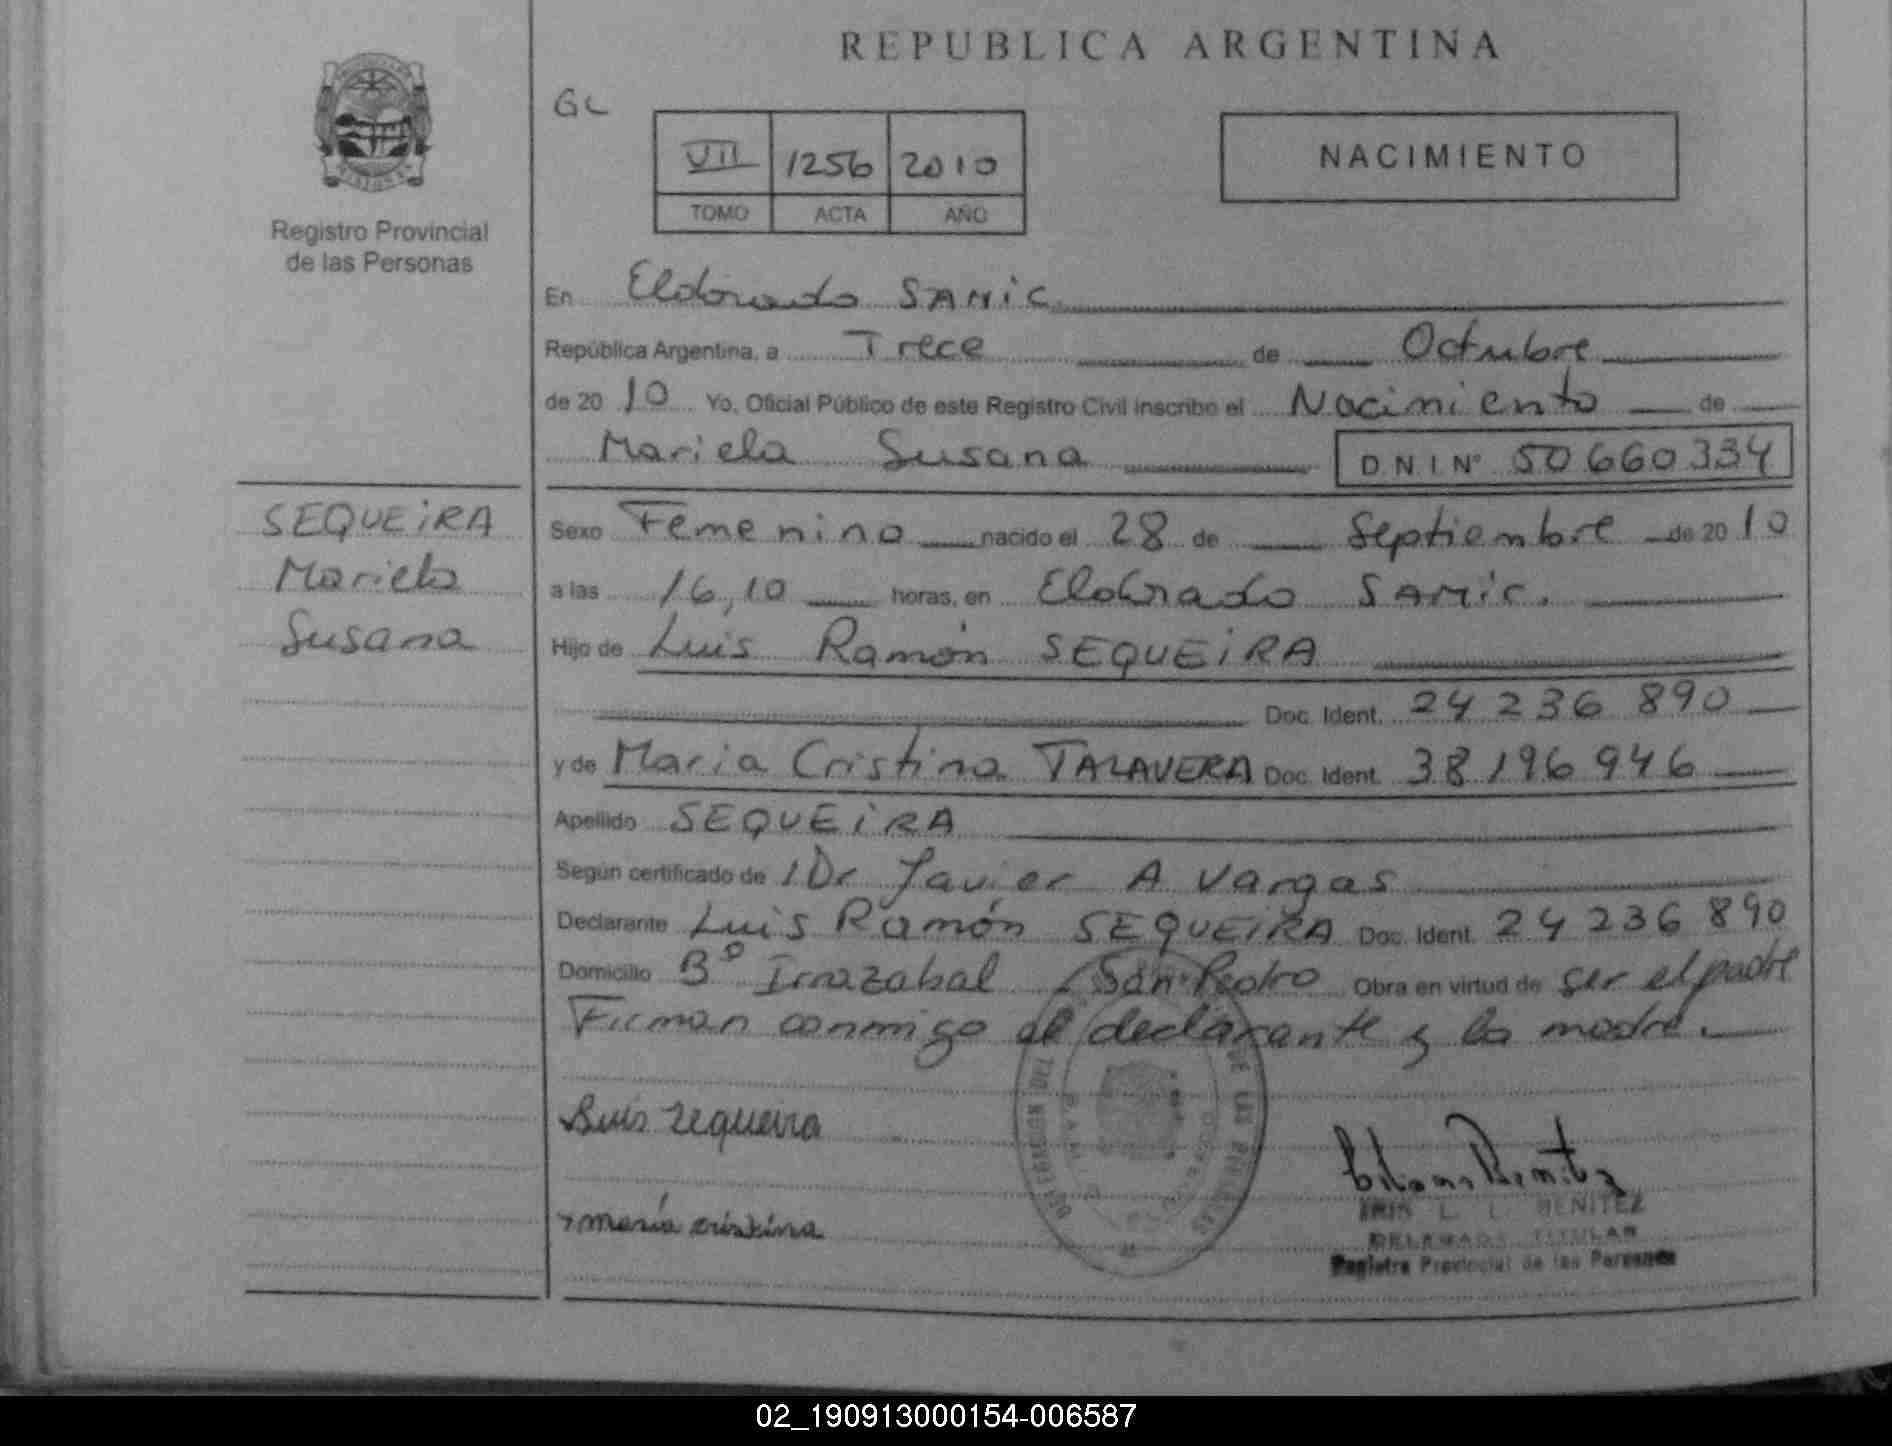 REPUBLICA ARGENTINA
GL
VII 1256 2010
TOMO ACTA AÑO
NACIMIENTO
Registro Provincial
de las Personas
En Eldorado SAMIC
República Argentina, a Trece de Octubre
de 2010 Yo, Oficial Público de este Registro Civil inscribo el Nacimiento de
Mariela Susana D.N.I. Nº 50660334
SEQUEIRA
Mariela
Susana
Sexo Femenino nacido el 28 de Septiembre de 2010
a las 16,10 horas, en Eldorado SAMIC.
Hijo de Luis Ramón SEQUEIRA
Doc. Ident. 24 236 890
y de Maria Cristina TALAVERA Doc. Ident. 38 196 946
Apellido SEQUEIRA
Según certificado de Dr Javier A Vargas
Declarante Luis Ramón SEQUEIRA Doc. Ident. 24 236 890
Domicilio Bº Irrazabal San Pedro Obra en virtud de ser el padre
Firman conmigo el declarante y la madre.
Luis Sequeira
maría cristina
IRIS L. L. BENITEZ
DELEGADA TITULAR
Registro Provincial de las Personas
02_190913000154-006587